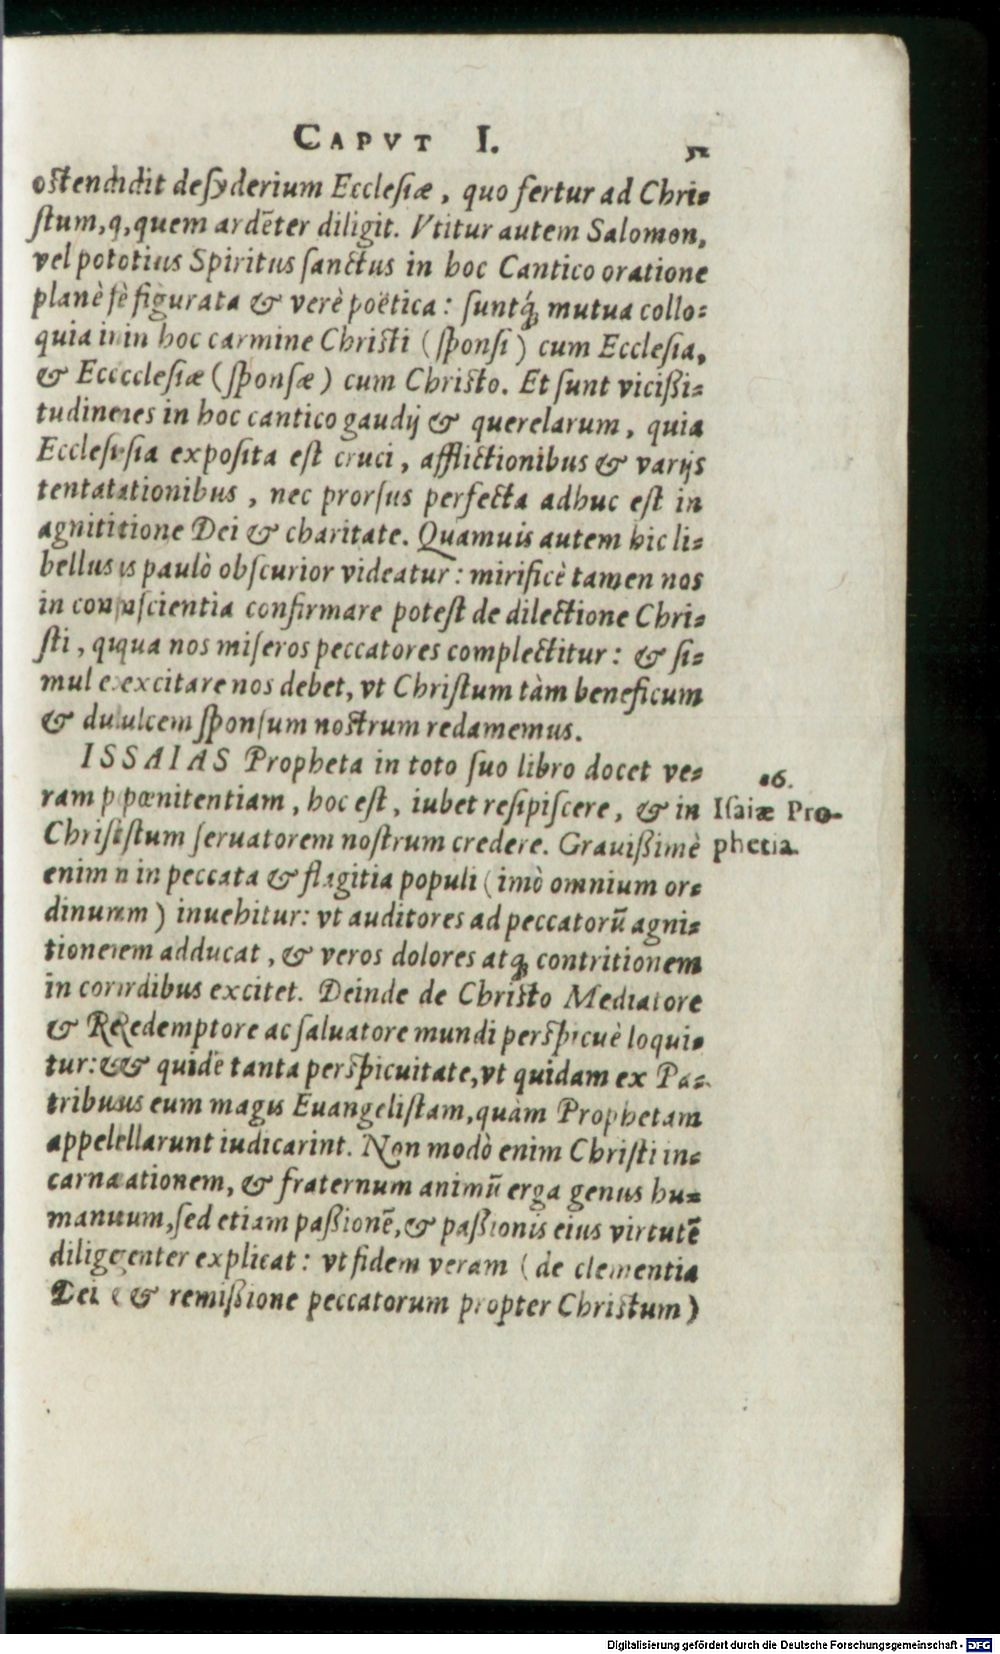 CAPVT I. 51
ostendidit desyderium Ecclesiæ, quo fertur ad Chri-
stum,q,quem ardēter diligit. Vtitur autem Salomon,
vel pototius Spiritus sanctus in hoc Cantico oratione
planè sè figurata & verè poëtica: suntq́; mutua collo-
quia inin hoc carmine Christi (sponsi) cum Ecclesia,
& Ecccclesiæ (sponsæ) cum Christo. Et sunt vicißi-
tudineres in hoc cantico gaudij & querelarum, quia
Ecclesisia exposita est cruci, afflictionibus & varijs
tentatationibus, nec prorsus perfecta adhuc est in
agnititione Dei & charitate. Quamuis autem hic li-
bellus is paulò obscurior videatur: mirificè tamen nos
in conscientia confirmare potest de dilectione Chri-
sti, qiqua nos miseros peccatores complectitur: & si-
mul exexcitare nos debet, vt Christum tàm beneficum
& dululcem sponsum nostrum redamemus.
ISSAIAS Propheta in toto suo libro docet ve-
ram p pœnitentiam, hoc est, iubet resipiscere, & in
Chrisistum seruatorem nostrum credere. Grauißimè
enim n in peccata & flagitia populi (imò omnium or-
dinumm) inuehitur: vt auditores ad peccatorū agni-
tionemem adducat, & veros dolores atq; contritionem
in corrdibus excitet. Deinde de Christo Mediatore
& ReRedemptore ac saluatore mundi perspicuè loqui-
tur: && quidē tanta perspicuitate,vt quidam ex Pa-
tribusus eum magis Euangelistam,quàm Prophetam
appelellarunt iudicarint. Non modò enim Christi in-
carnaationem, & fraternum animū erga genus hu-
manuum,sed etiam paßionē,& paßionis eius virtutē
diligegenter explicat: vt fidem veram (de clementia
Dei & remißione peccatorum propter Christum)
16.
Isaiæ Pro-
phetia.
Digitalisierung gefördert durch die Deutsche Forschungsgemeinschaft - DFG